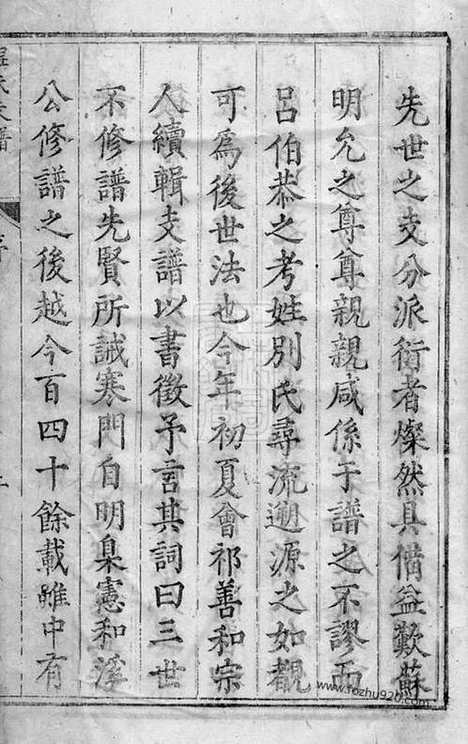 先世之支分派衍者燦然具備益歎蘇
明允之尊尊親親咸係于譜之不謬而
呂伯恭之考姓別氏尋流遡源之如覩
可為後世法也今年初夏會祁善和宗
人續輯支譜以書徵予言其詞曰三世
不修譜先賢所誡寒門自明臬憲和溪
公修譜之後越今百四十餘載雖中有
支譜
序
www.fozhu920.com